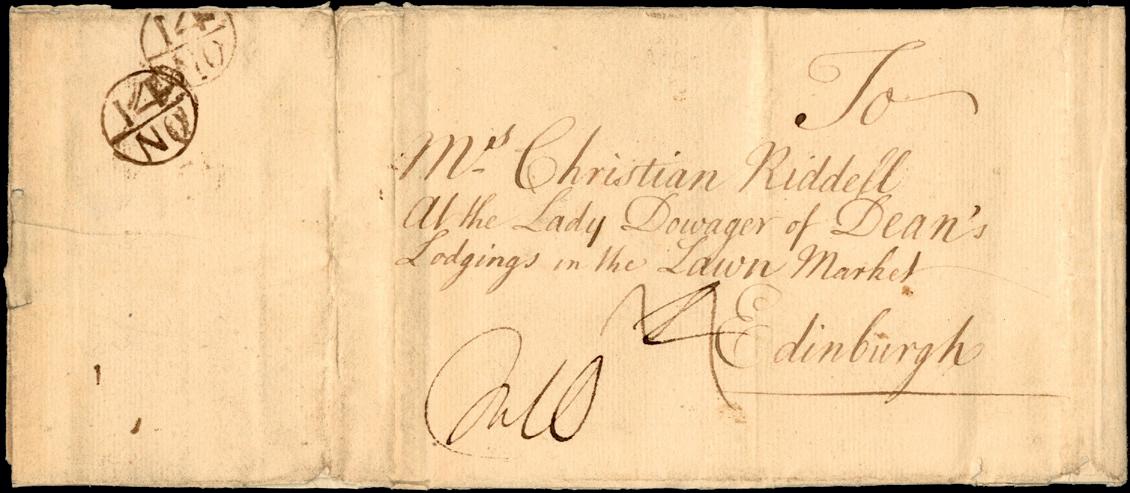 14
NO
14
NO
To
Mrs Christian Riddell
At the Lady Dowager of Dean's
Lodgings in the Lawn Market
Edinburgh